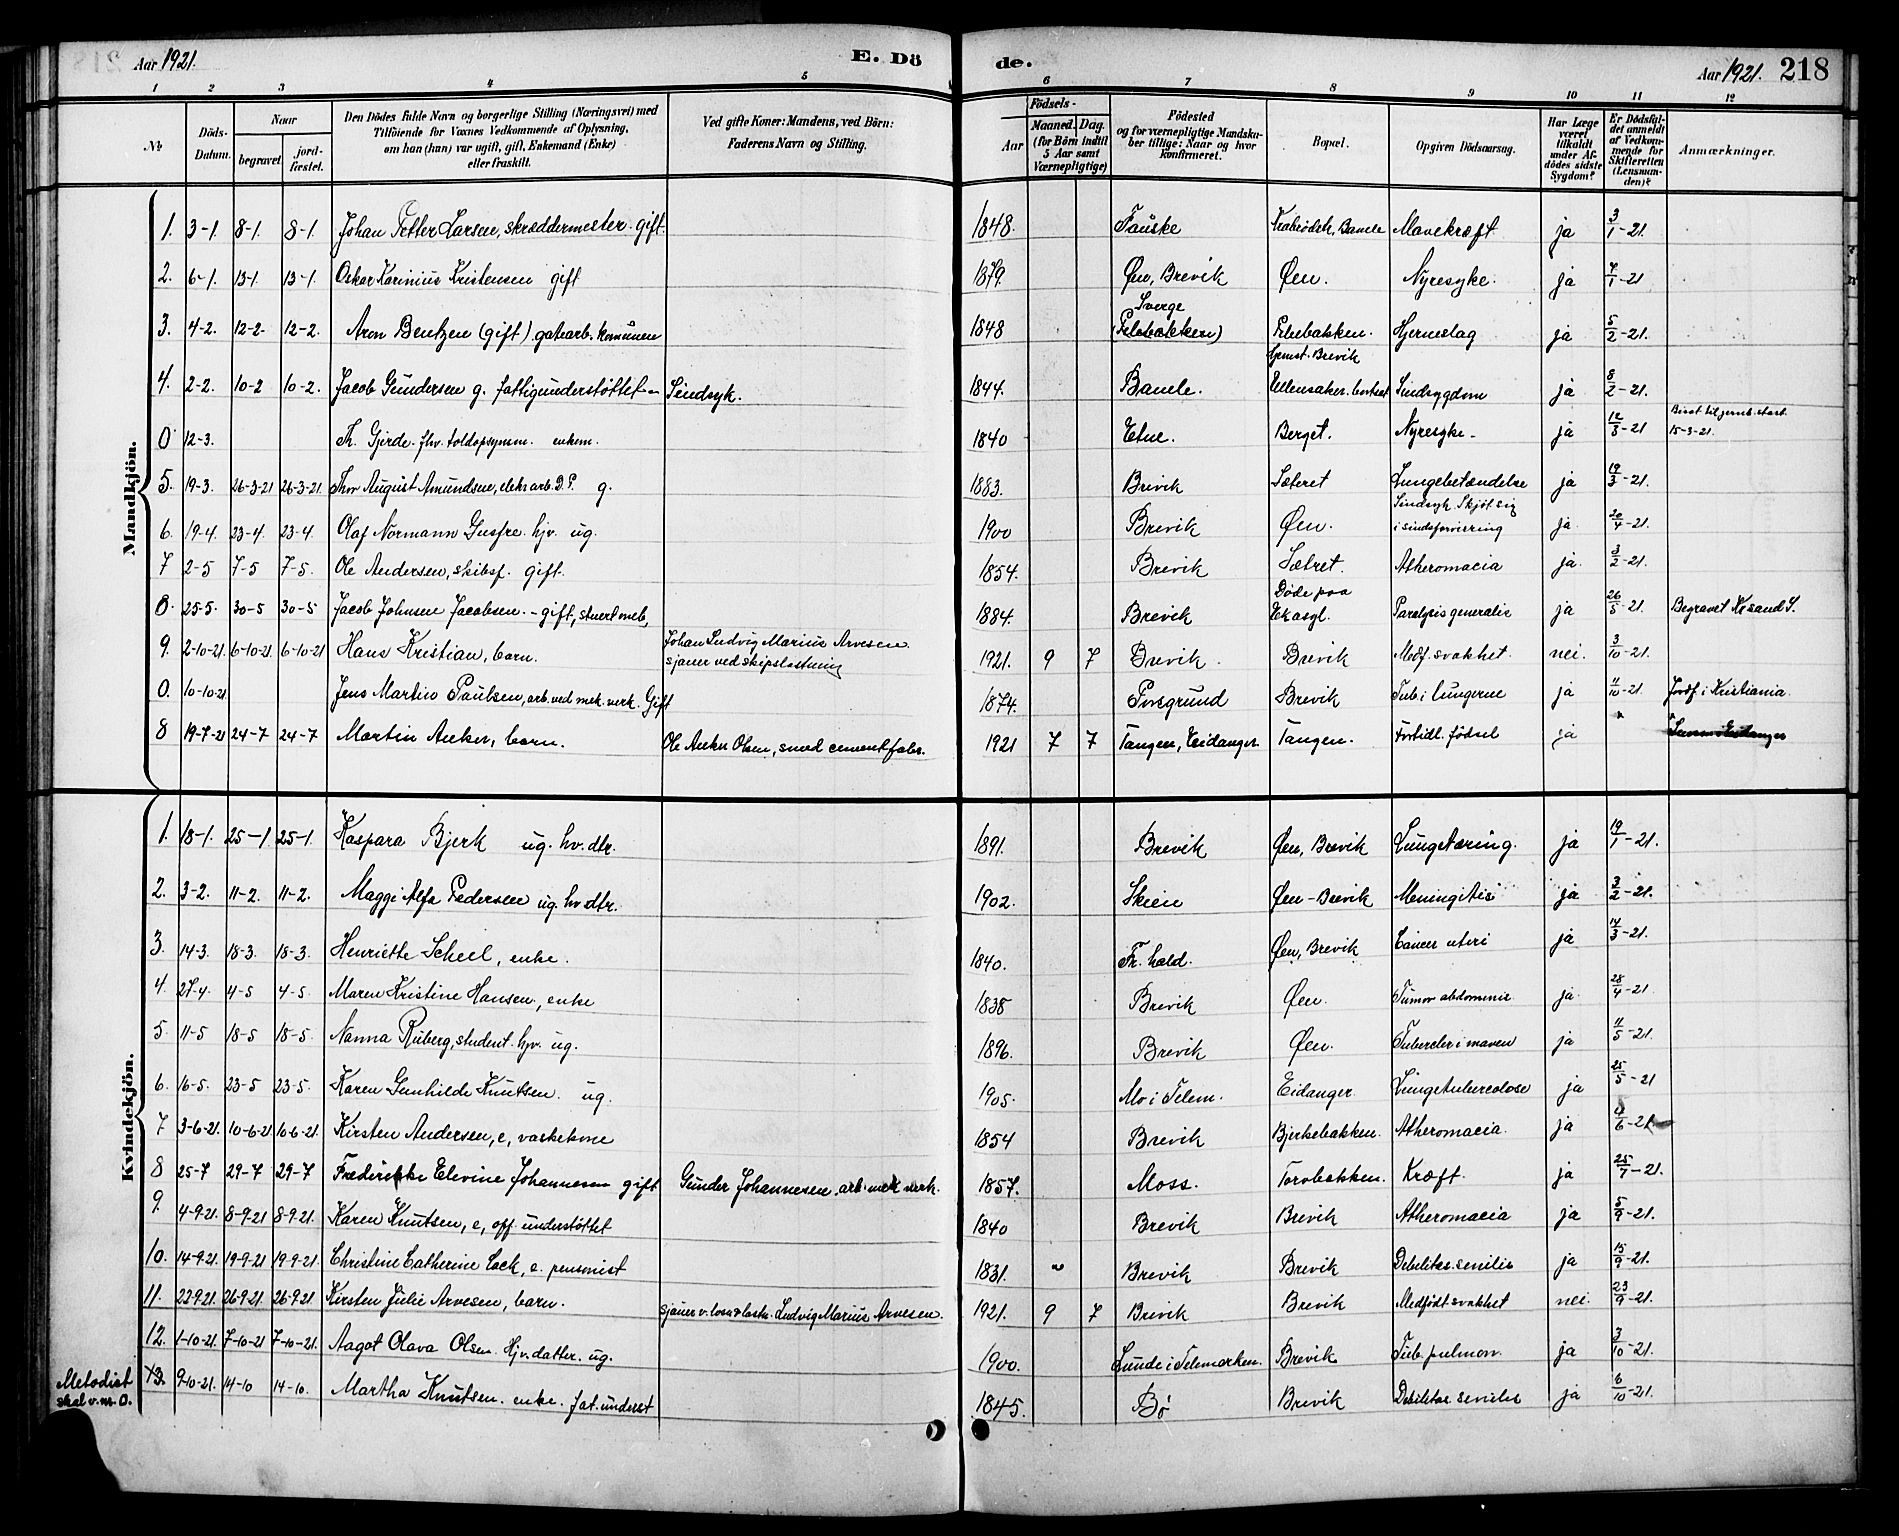 Aar 1921. E. Dö
de. Aar 1921. 218
1 2 3 4 5 6 7 8 9 10 11 12
No
Döds-Datum.
Naar begravet jordfæstet.
Den Dödes fulde Navn og borgerlige Stilling (Næringsvei) med Tilföiende for Voxnes Vedkommende af Oplysning, om han (hun) var ugift, gift, Enkemand (Enke) eller fraskilt.
Ved gifte Koner: Mandens, ved Börn: Faderens Navn og Stilling.
Födsels-
Aar Maaned. Dag. (for Börn indtil 5 Aar samt Værnepligtige)
Födested og for værnepligtige Mandskaber tillige: Naar og hvor konfirmeret.
Bopæl.
Opgiven Dödsaarsag.
Har Læge været tilkaldt under Afdödes sidste Sygdom?
Er Dödsfaldet anmeldt af Vedkommende for Skifteretten (Lensmanden)?
Anmærkninger.
Mandkjön.
1. 3-1. 8-1. 8-1. Johan Petter Larsen, skræddermester. gift. 1848. Fauske Bamle Mavekræft ja 3/1-21.
2. 6-1. 13-1. 13-1. Oskar Karinius Kristensen gift 1879. Øen, Brevik Øen. Nyresyke. ja 7/1-21
3. 4-2. 12-2. 12-2. Aron Bentzen (gift) gatearb. komunen 1848 Sverge Hjerneslag ja 5/2-21.
4. 2-2. 10-2 10-2. Jacob Gundersen g. fattigunderstøttet Sindsyk. 1844. Bamle. Brevik Sindsygdom ja 8/2-21.
0 12-3. Th. Gjerde. fhv. toldopsynsm. enkem. 1840 Etne. Berget. Nyresyke. ja 12/3-21 15-3-21.
5. 19-3. 26-3-21 26-3-21. Thor August Amundsen, elektr arb. D.P. g. 1883. Brevik Sæteret Lungebetændelse ja 19/3-21.
6. 19-4. 23-4. 23-4. Olaf Normann Gusfre. hjv. ug. 1900 Brevik Øen. Sindsyk. Skjøt sig i sindsforvirring ja. 20/4-21.
7 2-5 7-5 7-5. Ole Andersen, skibsf. gift. 1854. Brevik Sætret. Atheromacia ja. 3/2-21.
8. 25-5. 30-5 30-5 Jacob Johnsen Jacobsen. - gift, stuert 1884. Brevik Døde paa Ekasyl. Paralysis generalis ja 26/5-21. Begravet Krsand S.
9. 2-10-21. 6-10-21. 6-10-21 Hans Kristian, barn. Johan Ludvig Marius Arvesen sjauer ved skipslastning 1921. 9 7 Brevik. Brevik Medf. svakhet. nei. 3/10-21.
0. 10-10-21. Jens Martin Paulsen, arb. ved mek. verk. Gift 1874. Porsgrund Brevik Tub. i lungerne ja 11/10-21. Jordf. i Kristiania.
8 19-7-21 24-7 24-7 Martin Anker, barn. Ole Anker Olsen, smed cementfabr. 1921 7 7 Tangen, Eidanger Tangen. Fortidl. fødsel ja
Kvindekjön.
1. 18-1. 25-1 25-1. Kaspara Bjerk ug. hv. dtr. 1891. Brevik Øen, Brevik Lungetæring. ja 19/1-21.
2. 3-2. 11-2. 11-2. Maggi Alfa Pedersen ug. hv dtr. 1902. Skien Øen-Brevik Meningitis ja 3/2-21.
3. 14-3. 18-3. 18-3. Henriette Scheel, enke. 1840. Fr. hald. Øen, Brevik Cancer uteri ja 14/3-21.
4. 27-4. 4-5 4-5. Maren Kristine Hansen, enke 1838 Brevik Øen. Tumor abdominis ja 28/4-21.
5. 11-5 18-5 18-5. Nanna Ruberg, student. hjv. ug. 1896. Brevik Øen. Tubercler i maven ja 11/5-21.
6. 16-5. 23-5 23-5. Karen Gunhilde Knutsen. ug. 1905. Mo i Telem. Eidanger. Lungetuberculose ja 25/5-21
7 3-6-21. 10-6-21 10-6-21. Kirsten Andersen, e, vaskekone 1854 Brevik Bjerkebakken. Atheromacia. ja 6-21
8 25-7 29-7 29-7 Frederikke Elevine Johannesen gift Gunder Johannesen. arb. mek verk. 1857. Moss. Torvbakken. Kræft. ja 25/7-21.
9. 4-9-21. 8-9-21 8-9-21. Karen Knutsen, e, off. understøttet 1840 Brevik Brevik Atheromacia ja 5/9-21.
10. 14-9-21. 19-9-21 19-9-21 Christine Catherine Lock, e. pensionist 1831. " Brevik Brevik Debilitas senilis ja 15/9-21.
11. 22-9-21. 26-9-21 26-9-21 Kirsten Julie Arvesen, barn. sjauer v. loss & lastn. Ludvig Marius Arvesen. 1921. 9 7 Brevik Brevik Medfødt svakhet nei. 23/9-21.
12. 1-10-21. 7-10-21 7-10-21. Aagot Olava Olsen. Hjv. datter. ug. 1900. Lunde i Telemarken. Brevik Tub. pulmon. ja 3/10-21.
Metodist skal v. nr. 0.
13. 9-10-21. 14-10 14-10. Martha Knutsen. enke. fat. underst 1845. Bø Brevik Debilitas senilis ja 6/10-21.